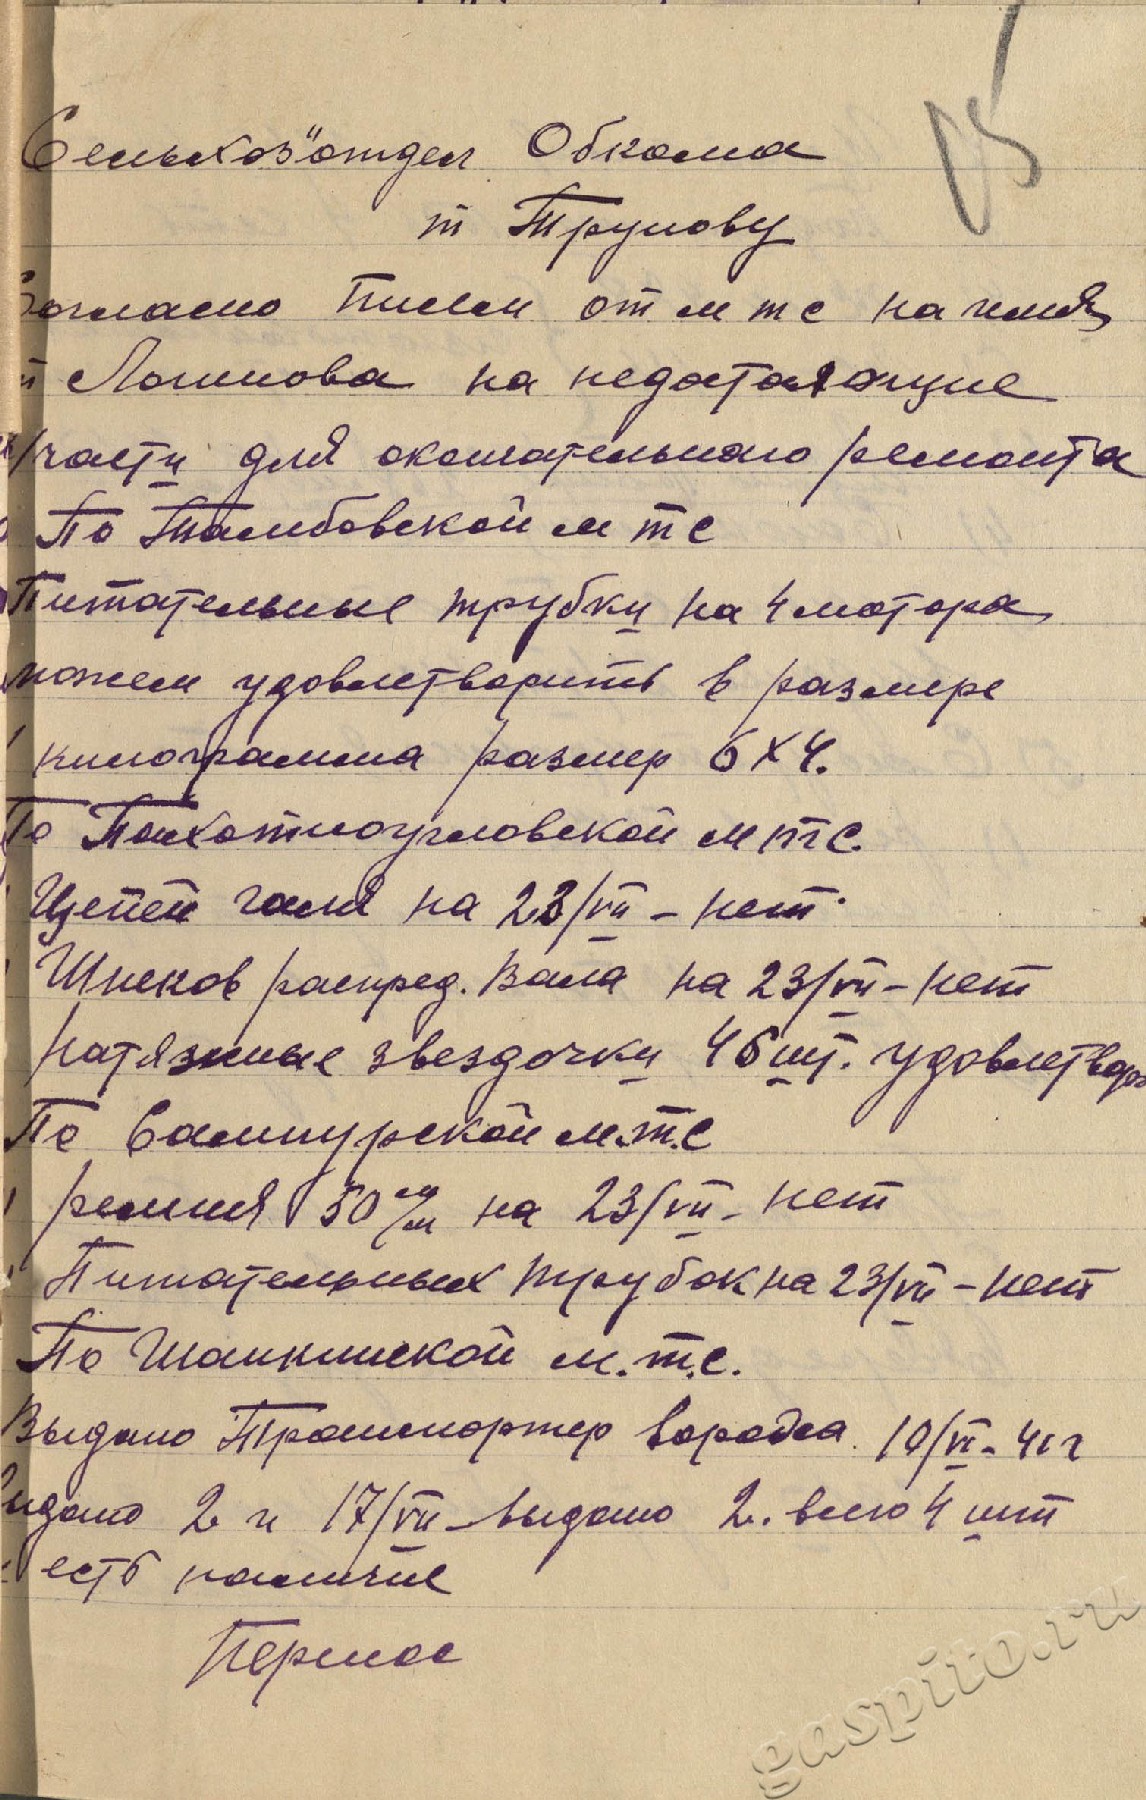 85
Сельхоз"отдел Обкома
т Трунову
Согласно Писем от м т с на имя
т Логинова на недостающие
з/части для окончательного ремонта
По Тамбовской м т с
Питательные трубки на 4 мотора
можем удовлетворить в размере
килограмма размер 6х4.
По Пахотноугловской м т с.
Цепей галя на 23/VII – нет.
Шнеков распред. вала на 23/VII – нет
натяжные звездочки 46 шт. удовлетвор
По Сампурской м.т.с
ремня 50 м/м на 23/VII – нет
Питательных трубок на 23/VII – нет
По Шапкинской м.т.с.
Выдано Транспортер 10/VI – 41 г
Выдано 2 и 17/VII – выдано 2. всего 4 шт
есть наличие
gaspito.ru